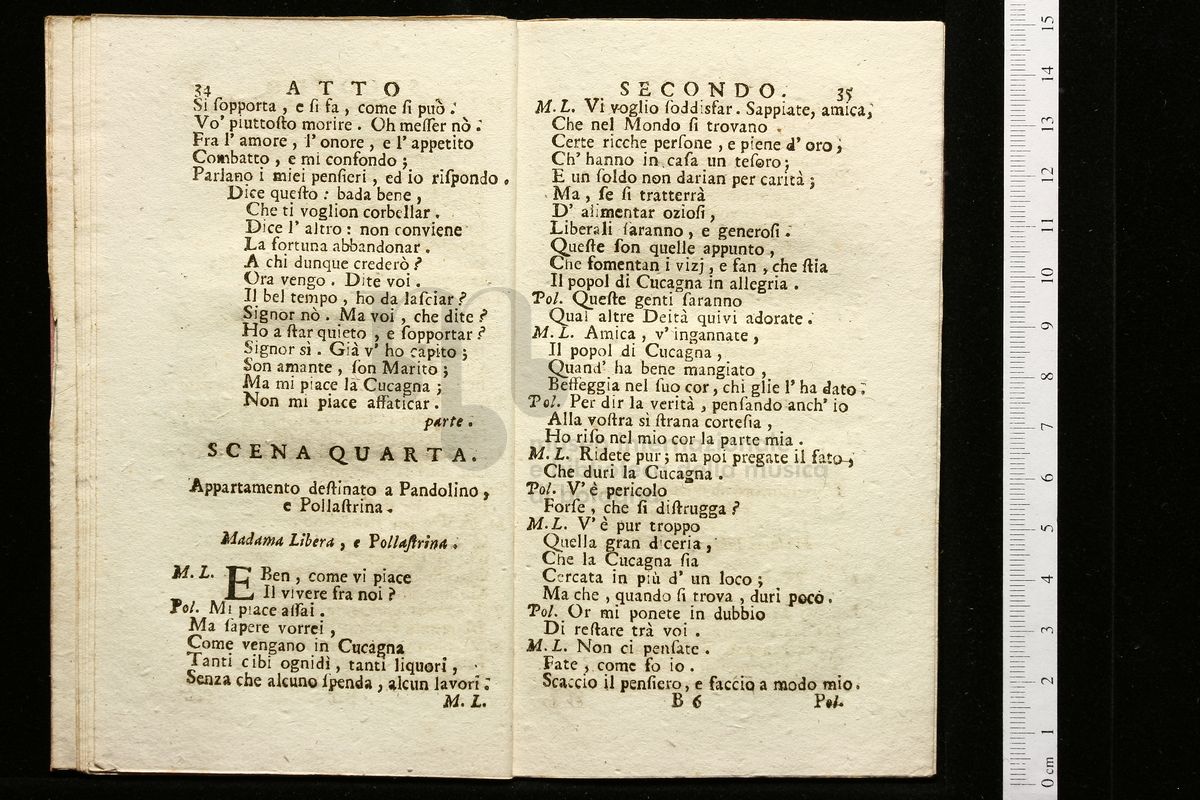 34 ATTO
Si ſopporta, e ſi fa, come ſi può.
Vo' piuttoſto morire. Oh meſſer nò.
Fra l'amore, l'onore, e l'appetito
Combatto, e mi confondo;
Parlano i miei penſieri, ed io riſpondo.
Dice queſto: bada bene,
Che ti voglion corbellar.
Dice l'altro: non conviene
La fortuna abbandonar.
A chi dunque crederò?
Ora vengo. Dite voi.
Il bel tempo, ho da laſciar?
Signor nò. Ma voi, che dite?
Ho a ſtar quieto, e ſopportar?
Signor sì. Già v'ho capito;
Son amante, ſon Marito;
Ma mi piace la Cucagna;
Non mi piace affaticar.
parte.
SCENA QUARTA.
Appartamento deſtinato a Pandolino,
e Pollaſtrina.
Madama Libera, e Pollaſtrina.
M. L. E Ben, come vi piace
Il vivere fra noi?
Pol. Mi piace aſſai.
Ma ſapere vorrei,
Come vengano in Cucagna
Tanti cibi ognidì, tanti liquori,
Senza che alcuno ſpenda, alcun lavori.
M. L.
SECONDO. 35
M. L. Vi voglio ſoddisfar. Sappiate, amica,
Che nel Mondo ſi trovano
Certe ricche perſone, e piene d'oro;
Ch'hanno in caſa un teſoro;
E un ſoldo non darian per carità;
Ma, ſe ſi tratterrà
D'alimentar ozioſi,
Liberali ſaranno, e generoſi.
Queſte ſon quelle appunto,
Che fomentan i vizj, e fan, che ſtia
Il popol di Cucagna in allegria.
Pol. Queſte genti ſaranno
Quai altre Deità quivi adorate.
M. L. Amica, v'ingannate,
Il popol di Cucagna,
Quand'ha bene mangiato,
Beffeggia nel ſuo cor, chi glie l'ha dato.
Pol. Per dir la verità, penſando anch'io
Alla voſtra sì ſtrana corteſia,
Ho riſo nel mio cor la parte mia.
M. L. Ridete pur; ma poi pregate il fato,
Che duri la Cucagna.
Pol. V'è pericolo
Forſe, che ſi diſtrugga?
M. L. V'è pur troppo
Quella gran diceria,
Che la Cucagna ſia
Cercata in più d'un loco;
Ma che, quando ſi trova, duri poco.
Pol. Or mi ponete in dubbio
Di reſtare trà voi.
M. L. Non ci penſate.
Fate, come fo io.
Scaccio il penſiero, e faccio a modo mio.
B 6 Pol.